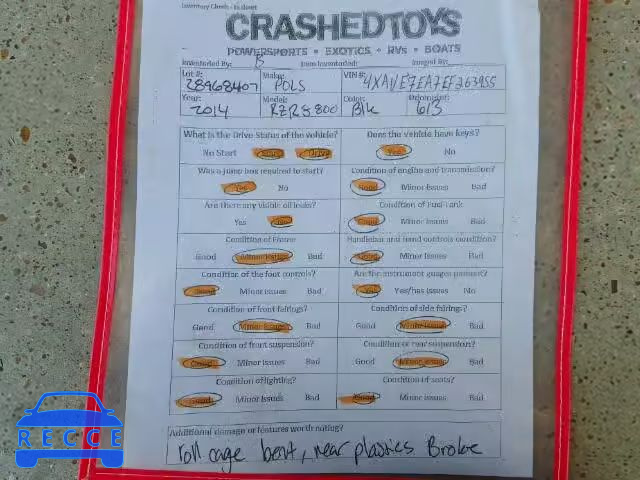 Inventory Check - In short
CRASHEDTOYS
POWERSPORTS • EXOTICS • RVs • BOATS
Inventoried By: B Date Inventoried: Imaged By:
Lot #: 28968407 Make: POLS VIN #: 4XAVE7EA7EF263955
Year: 2014 Model: RZRS 800 Color: Blk Odometer: 613
What is the Drive Status of the vehicle? Does the vehicle have keys?
No Start Start Drive Yes No
Was a jump box required to start? Condition of engine and transmission?
Yes No Good Minor Issues Bad
Are there any visible oil leaks? Condition of Fuel Tank
Yes No Good Minor Issues Bad
Condition of Frame Handlebar and hand controls condition?
Good Minor Issues Bad Good Minor Issues Bad
Condition of the foot controls? Are the instrument gauges present?
Good Minor Issues Bad Yes Yes/has issues No
Condition of front fairings? Condition of side fairings?
Good Minor Issues Bad Good Minor Issues Bad
Condition of front suspension? Condition of rear suspension?
Good Minor Issues Bad Good Minor Issues Bad
Condition of lighting? Condition of seats?
Good Minor Issues Bad Good Minor Issues Bad
Additional damage or features worth noting?
roll cage bent, rear plastics Broke
RECCE